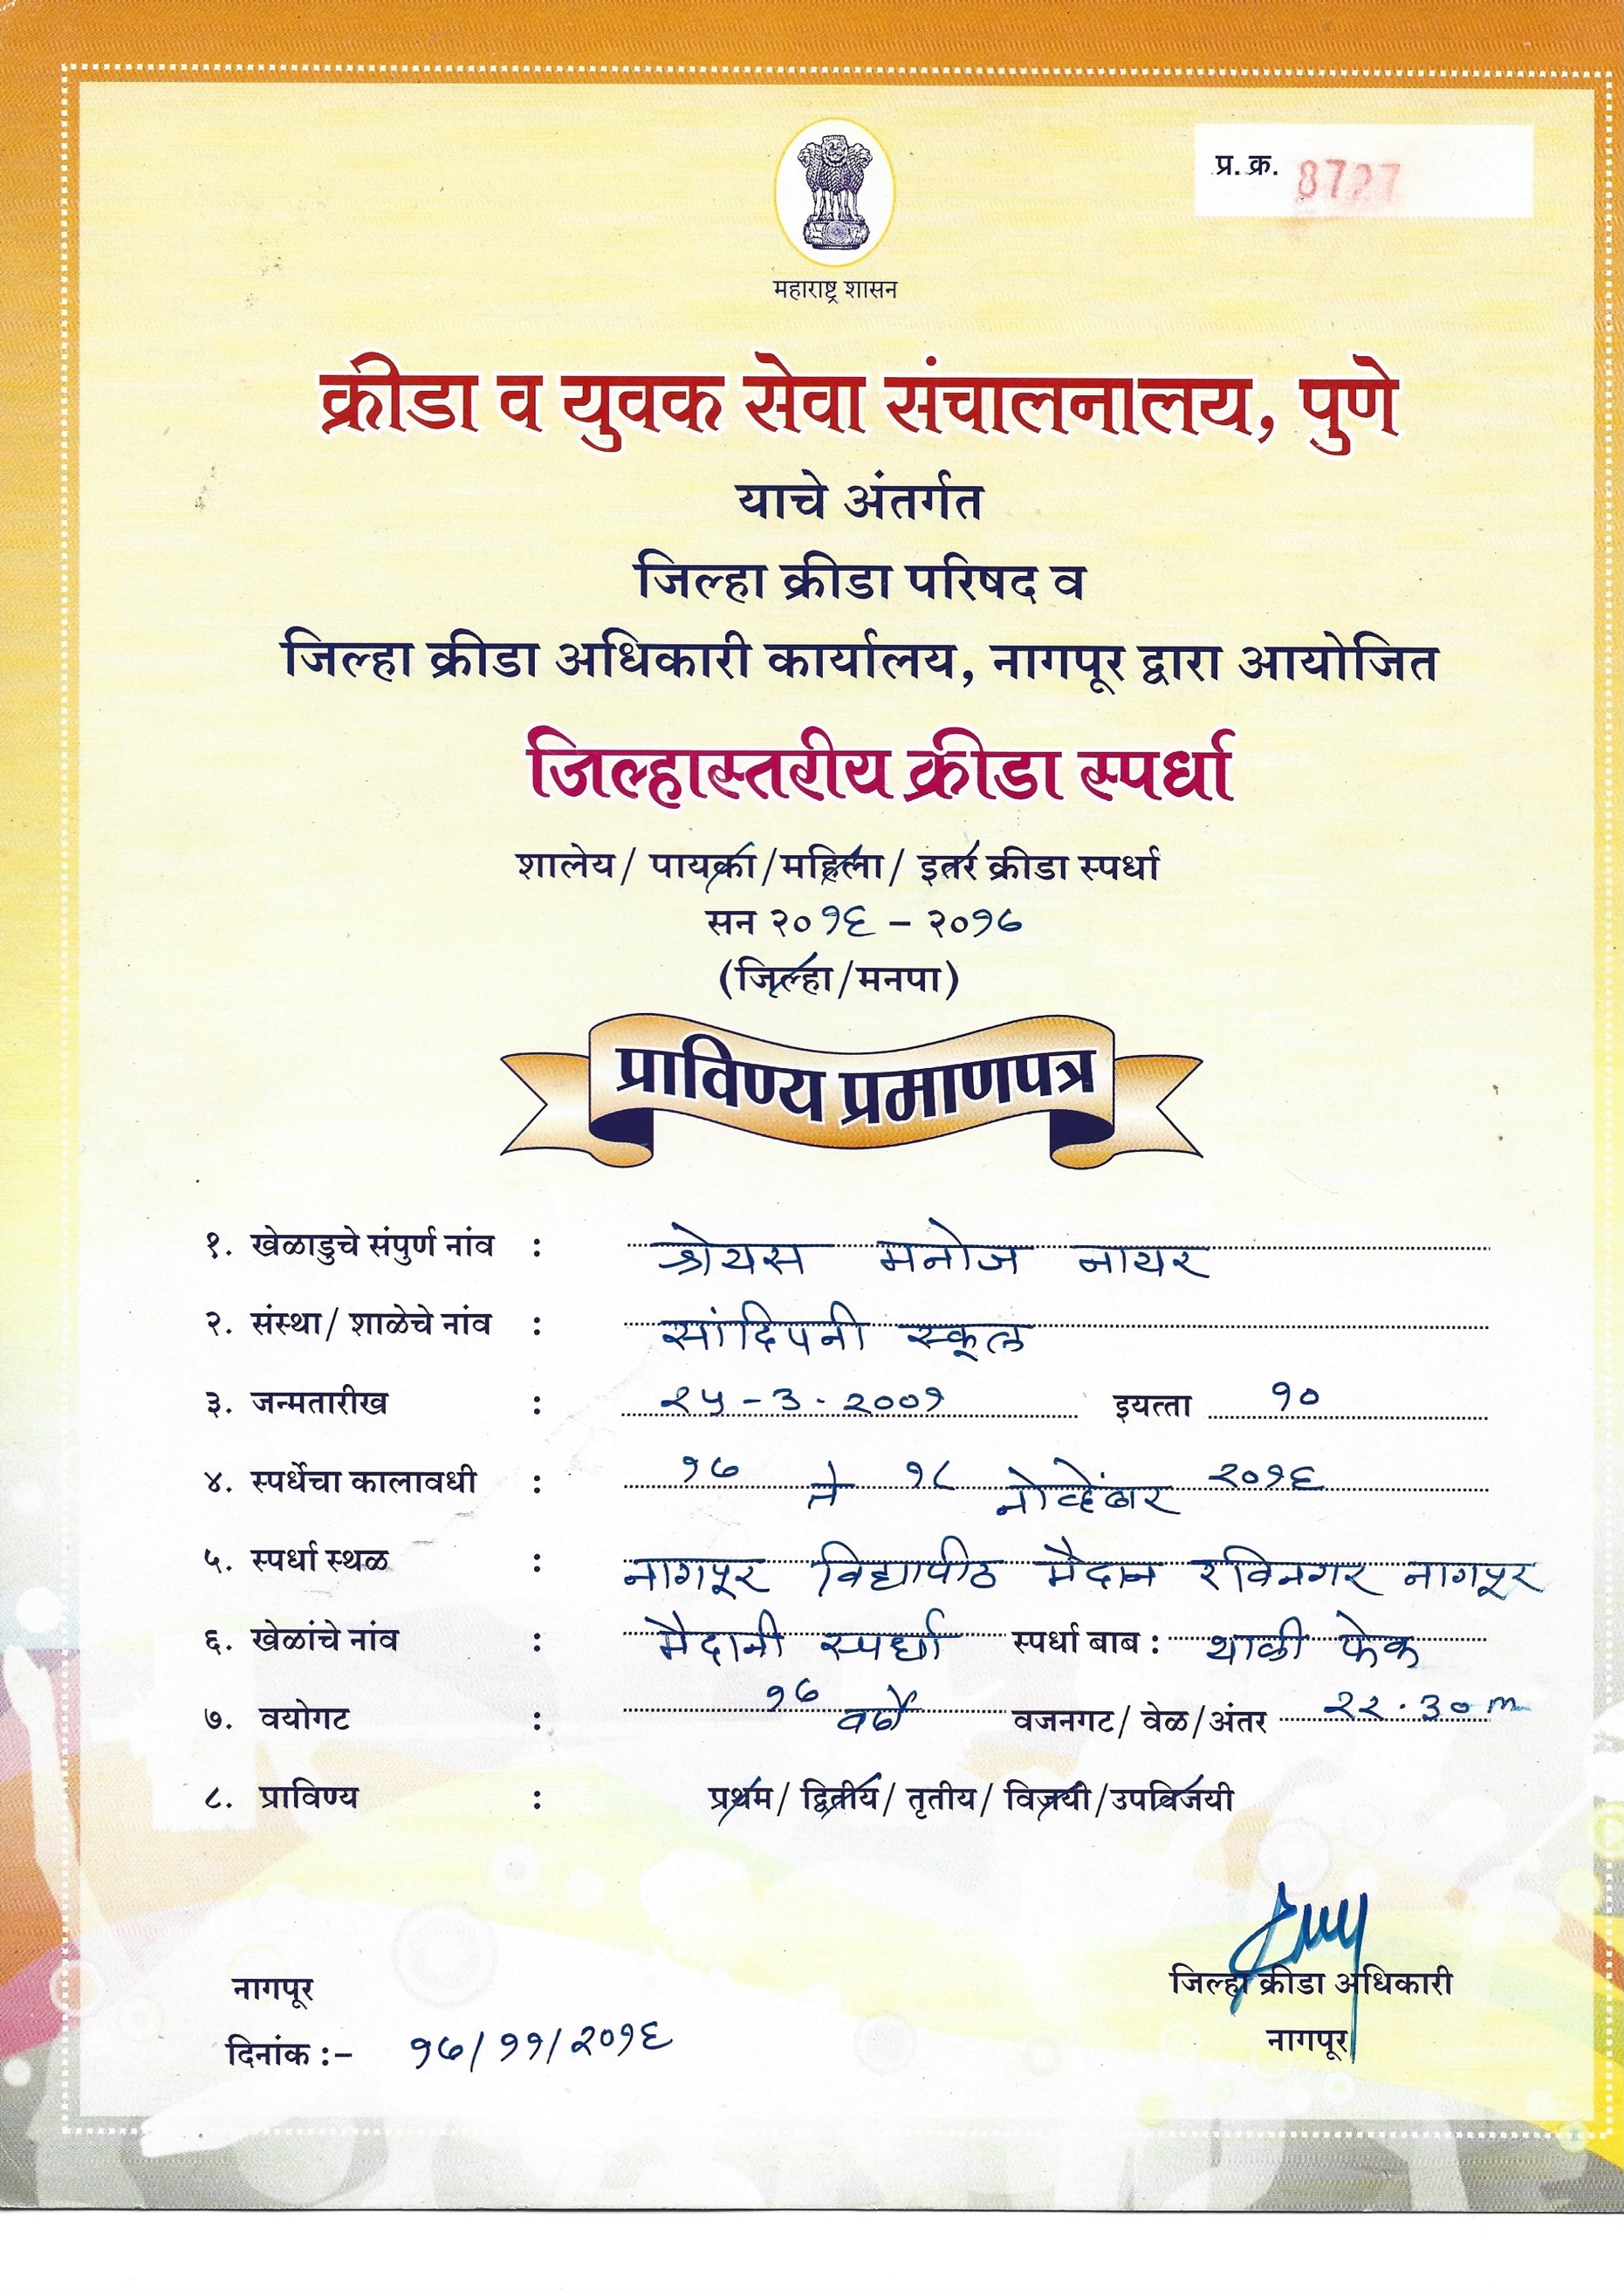 प्र. क्र. 8727
महाराष्ट्र शासन
क्रीडा व युवक सेवा संचालनालय, पुणे
याचे अंतर्गत
जिल्हा क्रीडा परिषद व
जिल्हा क्रीडा अधिकारी कार्यालय, नागपूर द्वारा आयोजित
जिल्हास्तरीय क्रीडा स्पर्धा
शालेय/ पायका/महिला/ इतर क्रीडा स्पर्धा
सन २०१६ – २०१७
(जिल्हा/मनपा)
प्राविण्य प्रमाणपत्र
१. खेळाडुचे संपुर्ण नांव : श्रेयस मनोज नायर
२. संस्था/ शाळेचे नांव : सांदिपनी स्कूल
३. जन्मतारीख : २५-३-२००१ इयत्ता १०
४. स्पर्धेचा कालावधी : १७ ते १८ नोव्हेंबर २०१६
५. स्पर्धा स्थळ : नागपूर विद्यापीठ मैदान रविनगर नागपूर
६. खेळांचे नांव : मैदानी स्पर्धा स्पर्धा बाब : थाळी फेक
७. वयोगट : १७ वर्षे वजनगट/ वेळ/अंतर २२.३० m
८. प्राविण्य : प्रथम/ द्वितीय/ तृतीय/ विजयी/उपविजयी
जिल्हा क्रीडा अधिकारी
नागपूर
नागपूर
दिनांक :– १७/११/२०१६